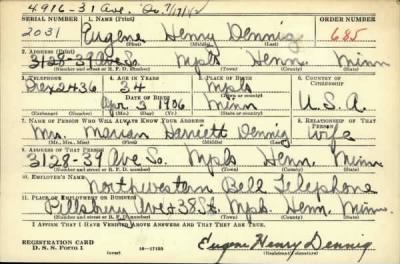 4916-31 Ave. So. 7/17/42
SERIAL NUMBER 1. NAME (Print) ORDER NUMBER
2031 Eugene Henry Dennig 685
(First) (Middle) (Last)
2. ADDRESS (Print)
3128-39 Ave So. Mpls Henn. Minn
(Number and street or R. F. D. number) (Town) (County) (State)
3. TELEPHONE 4. AGE IN YEARS 5. PLACE OF BIRTH 6. COUNTRY OF CITIZENSHIP
Drex 2436 34 Mpls
DATE OF BIRTH (Town or county)
Apr 3 1906 Minn U.S.A.
(Exchange) (Number) (Mo.) (Day) (Yr.) (State or country)
7. NAME OF PERSON WHO WILL ALWAYS KNOW YOUR ADDRESS 8. RELATIONSHIP OF THAT PERSON
Mrs. Marian Harriett Dennig wife
(Mr., Mrs., Miss) (First) (Middle) (Last)
9. ADDRESS OF THAT PERSON
3128-39 Ave So. Mpls Henn, Minn.
(Number and street or R. F. D. number) (Town) (County) (State)
10. EMPLOYER'S NAME
Northwestern Bell Telephone
11. PLACE OF EMPLOYMENT OR BUSINESS
Pillsbury Ave & 38 St. Mpls. Henn, Minn.
(Number and street or R. F. D. number) (Town) (County) (State)
I AFFIRM THAT I HAVE VERIFIED ABOVE ANSWERS AND THAT THEY ARE TRUE.
REGISTRATION CARD
D. S. S. FORM 1 (over) 16-17105 Eugene Henry Dennig
(Registrant's signature)